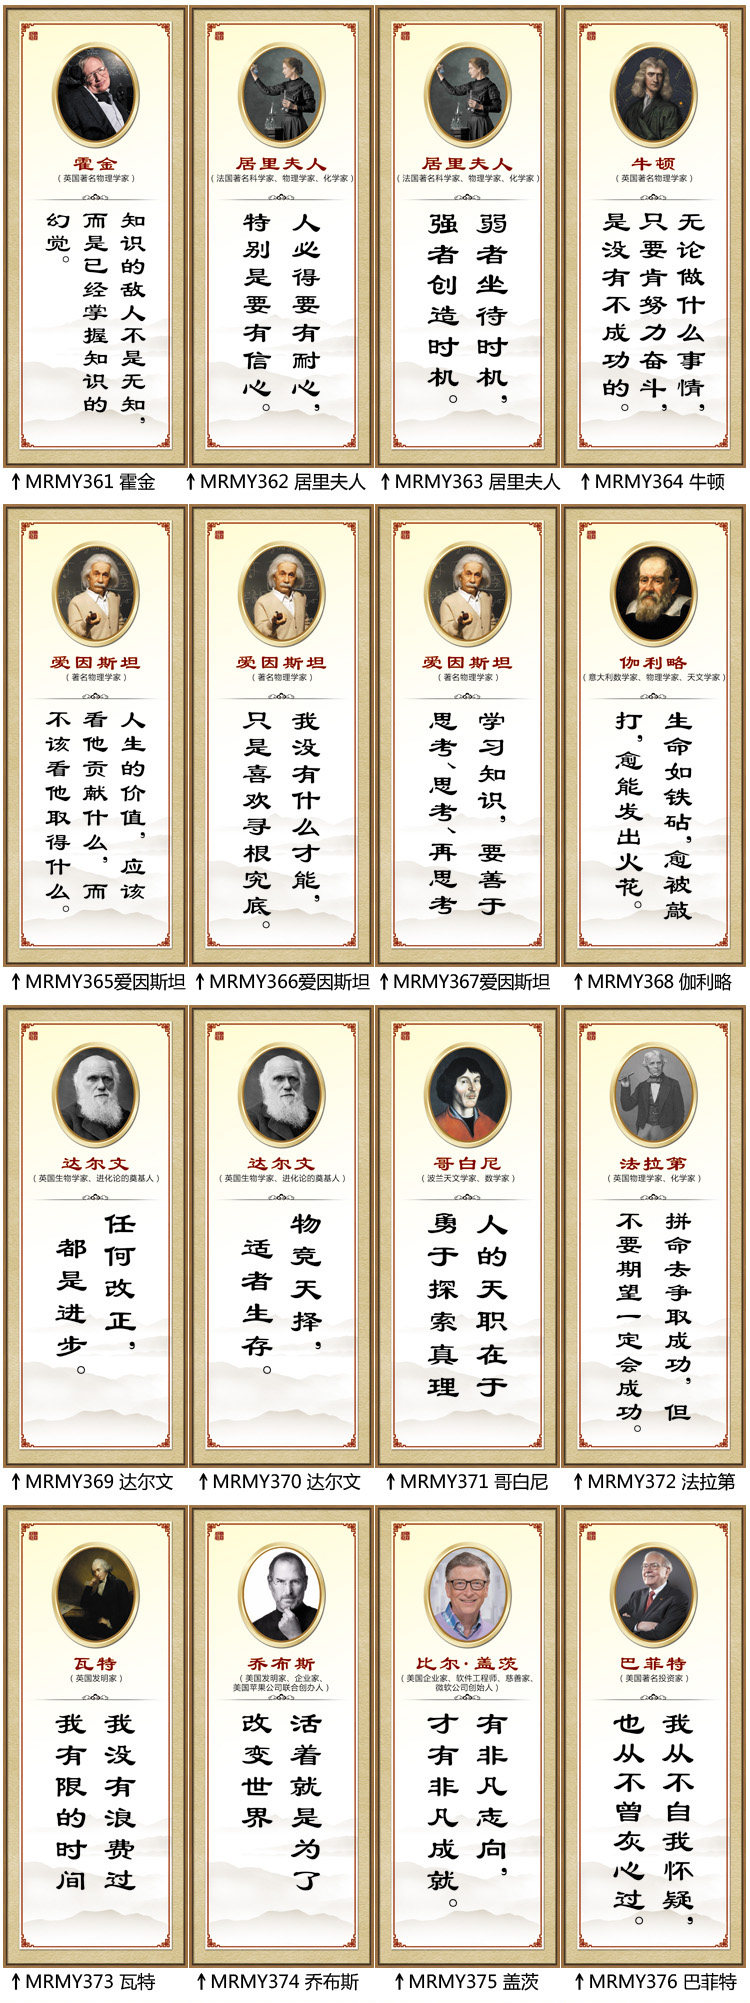 霍金
（英国著名物理学家）
知识的敌人不是无知，
而是已经掌握知识的
幻觉。
↑MRMY361 霍金
居里夫人
（法国著名科学家、物理学家、化学家）
人必得要有耐心，
特别是要有信心。
↑MRMY362 居里夫人
居里夫人
（法国著名科学家、物理学家、化学家）
弱者坐待时机，
强者创造时机。
↑MRMY363 居里夫人
牛顿
（英国著名物理学家）
无论做什么事情，
只要肯努力奋斗，
是没有不成功的。
↑MRMY364 牛顿
爱因斯坦
（著名物理学家）
人生的价值，应该
看他贡献什么，而
不该看他取得什么。
↑MRMY365爱因斯坦
爱因斯坦
（著名物理学家）
我没有什么才能，
只是喜欢寻根究底。
↑MRMY366爱因斯坦
爱因斯坦
（著名物理学家）
学习知识，要善于
思考、思考、再思考
↑MRMY367爱因斯坦
伽利略
（意大利数学家、物理学家、天文学家）
生命如铁砧，愈被敲
打，愈能发出火花。
↑MRMY368 伽利略
达尔文
（英国生物学家、进化论的奠基人）
任何改正，
都是进步。
↑MRMY369 达尔文
达尔文
（英国生物学家、进化论的奠基人）
物竞天择，
适者生存。
↑MRMY370 达尔文
哥白尼
（波兰天文学家、数学家）
人的天职在于
勇于探索真理
↑MRMY371 哥白尼
法拉第
（英国物理学家、化学家）
拼命去争取成功，但
不要期望一定会成功。
↑MRMY372 法拉第
瓦特
（英国发明家）
我没有浪费过
我有限的时间
↑MRMY373 瓦特
乔布斯
（美国发明家、企业家、
美国苹果公司联合创办人）
活着就是为了
改变世界
↑MRMY374 乔布斯
比尔·盖茨
（美国企业家、软件工程师、慈善家、
微软公司创始人）
有非凡志向，
才有非凡成就。
↑MRMY375 盖茨
巴菲特
（美国著名投资家）
我从不自我怀疑，
也从不曾灰心过。
↑MRMY376 巴菲特